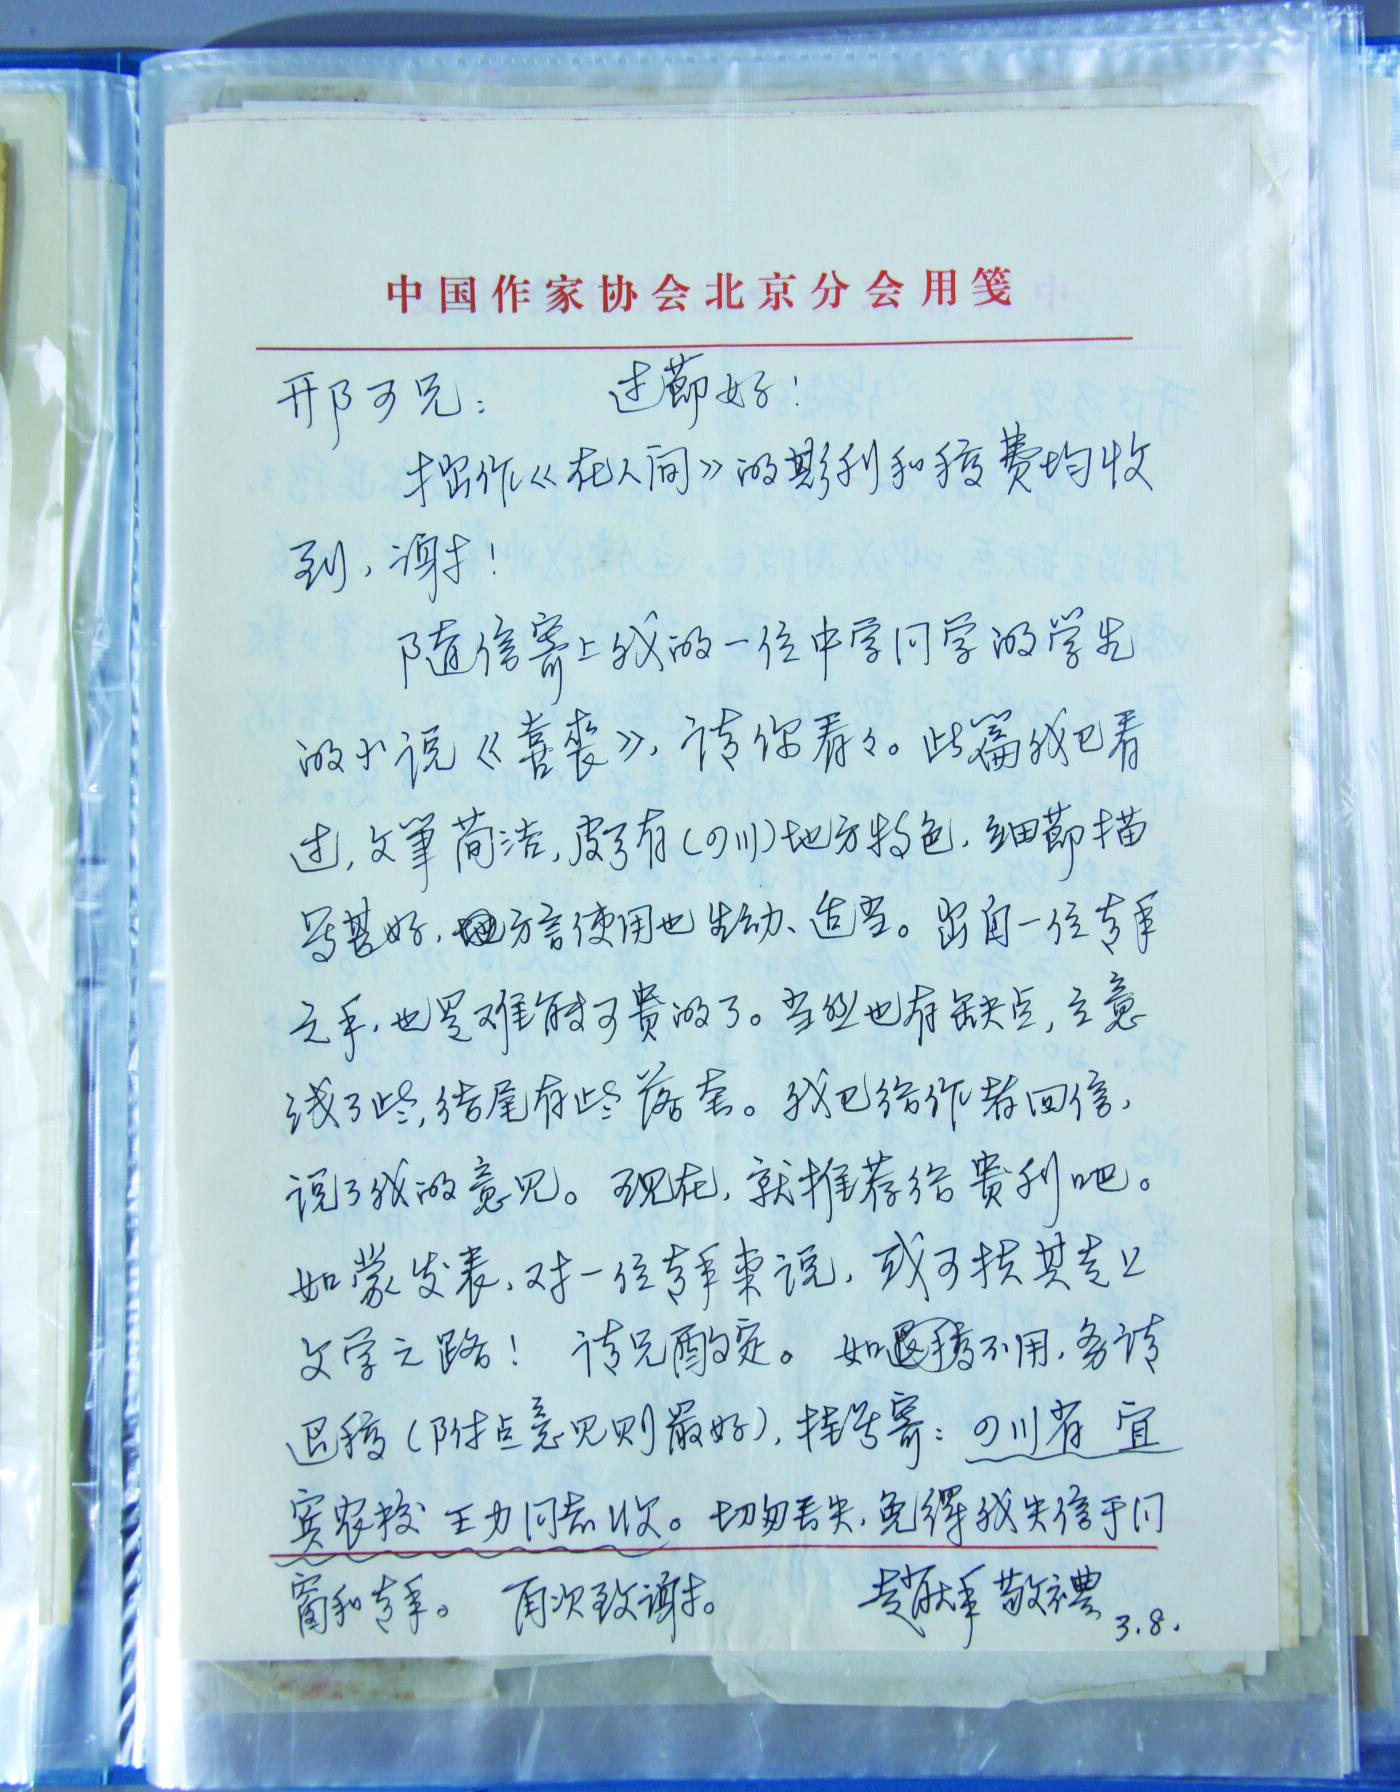 中国作家协会北京分会用笺
邢可兄： 过節好！
拙作《在人间》的期刊和稿费均收
到，谢谢！
随信寄上我的一位中学同学的学生
的小说《喜丧》，请你看々。此篇我已看
过，文筆简洁，颇有（四川）地方特色，细節描
写甚好，方言使用也生动、适当。出自一位青年
之手，也是难能可贵的了。当然也有缺点，立意
浅了些，结尾有些落套。我已给作者回信，
说了我的意见。现在，就推荐给贵刊吧。
如蒙发表，对一位青年来说，或可扶其走上
文学之路！ 请兄酌定。 如不用，务请
退稿（附点意见则最好），挂号寄：四川省 宜
宾农校 王力同志收。切勿丢失，免得我失信于同
窗和青年。 再次致谢。 赵 敬禮
3.8.